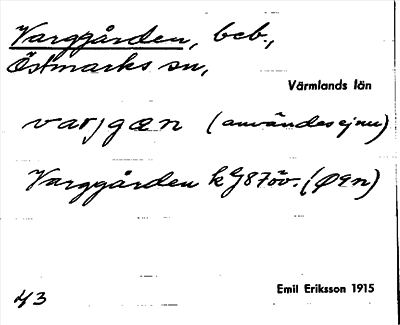 Varggården, beb.,
Östmarks sn,
Värmlands län
varjgæn (användes ej nu)
Varggården k G87öv. (Ö9n)
43
Emil Eriksson 1915